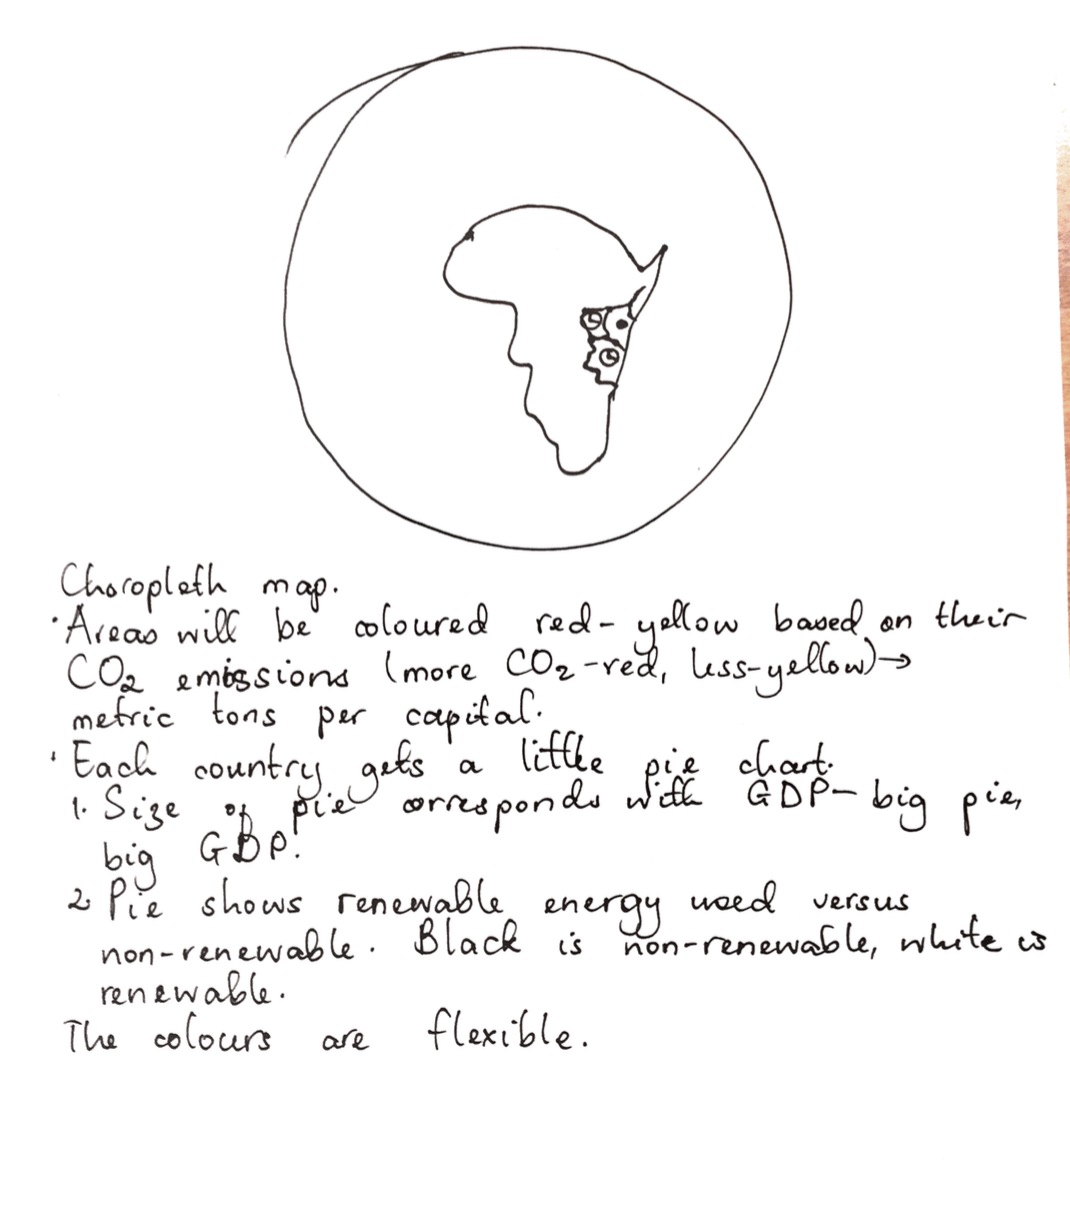 Choropleth map.
· Areas will be coloured red-yellow based on their
CO2 emissions (more CO2-red, less-yellow) →
metric tons per capital.
· Each country gets a little pie chart.
1. Size of pie corresponds with GDP- big pie,
big GDP.
2. Pie shows renewable energy used versus
non-renewable. Black is non-renewable, white is
renewable.
The colours are flexible.